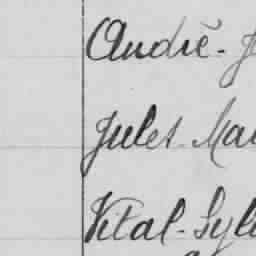 André-J
Jules-Mau
Vital-Sylv